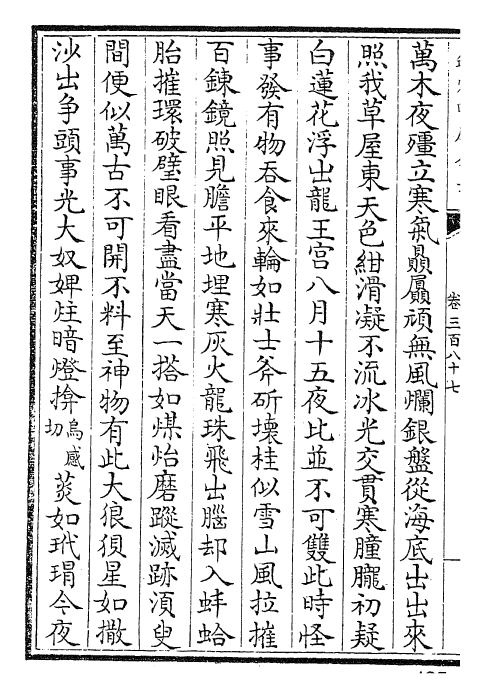 卷三百八十七
萬木夜殭立寒氣贔屭頑無風爛銀盤從海底出出來
照我草屋東天色紺滑凝不流冰光交貫寒曈曨初疑
白蓮花浮出龍王宮八月十五夜比並不可雙此時怪
事發有物吞食來輪如壯士斧斫壞桂似雪山風拉摧
百鍊鏡照見膽平地埋寒灰火龍珠飛出腦却入蚌蛤
胎摧環破璧眼看盡當天一搭如煤炲磨蹤滅跡湏臾
間便似萬古不可開不料至神物有此大狼狽星如撒
沙出争頭事光大奴婢炷暗燈掩烏感切菼如玳瑁今夜